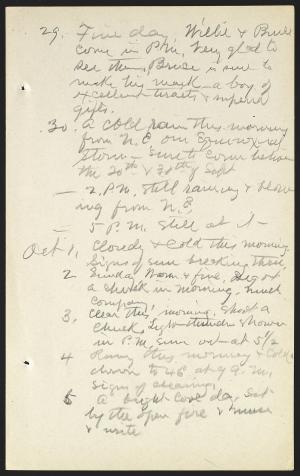 29. Fine day, Willie & Bruce
come in P.M. Very glad to
see them, Bruce is sure to
make his mark - a boy of
excellent traits & superior
gifts.
30. A cold rain this morning
from N.E. our Equinoxial
storm - sure to come between
the 20th & 30th of Sept
- 2 P.M. still raining & blow
ing from N.E
- 5 P.M. still at it -
Oct 1, Cloudy & Cold this morning.
Signs of sun breaking through,
2 Sunday Warm & fine,
a chuck in morning. Much
company,
3, Clear this morning. Shot a
chuck, Light thunder shower
in P.M. sun out at 5 1/2
4 Rainy this morning & Cold
down to 46 at 9 A.M.
signs of clearing.
5 A bright cool day, sat
by the open fire & muse
& write